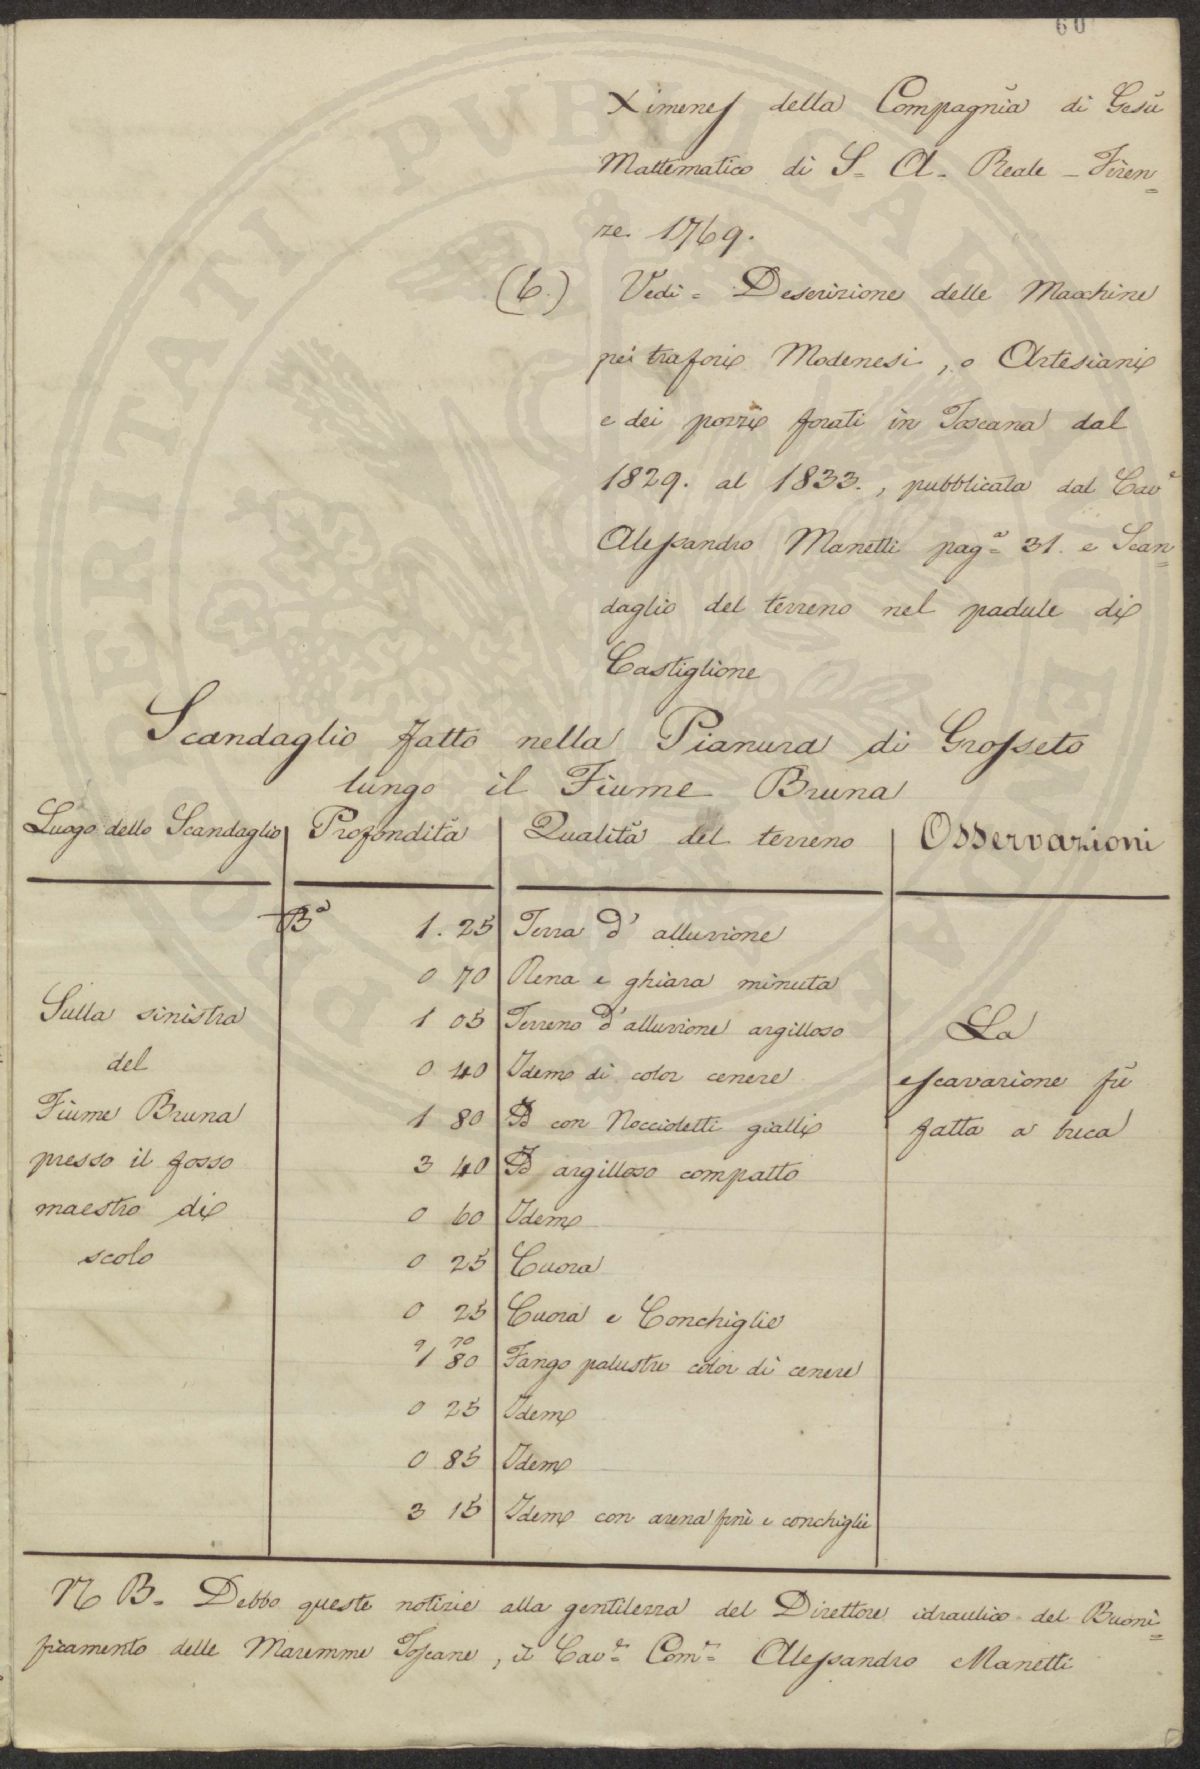 60
Ximenes della Compagnia di Gesù
Mattematico di S. A. Reale - Firen=
ze. 1769.
(6.) Vedi = Descrizione delle Macchine
pei trafori Modenesi, o Artesiani
e dei pozzi forati in Toscana dal
1829. al 1833., pubblicata dal Cav.e
Alessandro Manetti pag.a 31. e Scan=
daglio del terreno nel padule di
Castiglione
Scandaglio fatto nella Pianura di Grosseto
lungo il Fiume Bruna
Luogo dello Scandaglio Profondità Qualità del terreno Osservazioni
Ba 1. 25 Terra d'alluvione
0 70 Rena e ghiara minuta
Sulla sinistra 1 05 Terreno d'alluvione argilloso La
del 0 40 Idem di color cenere escavazione fù
Fiume Bruna 1 80 Id con Noccioletti gialli fatta a buca
presso il fosso 3 40 Id argilloso compatto
maestro di 0 60 Idem
scolo 0 25 Cuora
0 25 Cuora e Conchiglie
9 70
1 80 Fango palustre color di cenere
0 25 Idem
0 85 Idem
3 15 Idem con arena fine e conchiglie
N B. Debbo queste notizie alla gentilezza del Direttore idraulico del Buoni=
ficamento delle Maremme Toscane, il Cav.re Com.re Alessandro Manetti